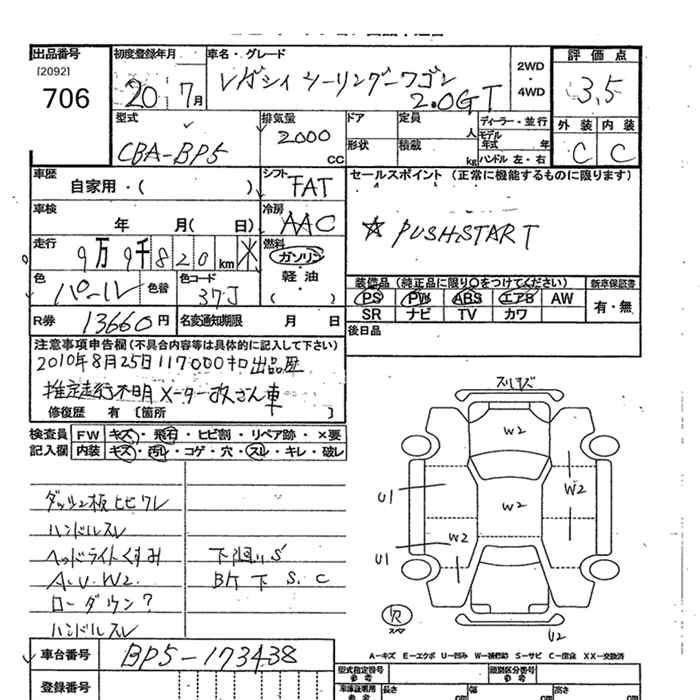 出品番号
[2092]
706
初度登録年月
20 7月
車名・グレード
レガシィ ツーリングワゴン
2.0GT
2WD
・
4WD
評価点
3.5
外装 内装
C C
型式
CBA-BP5
排気量
2000
CC
ドア 定員 人
形状 積載 kg
ディーラー・並行
モデル年式 年
ハンドル 左・右
車歴
自家用・( )
シフト
FAT
セールスポイント (正常に機能するものに限ります)
☆ PUSHSTART
車検
年 月( 日)
冷房
AAC
走行
9万9千820km ※
燃料
ガソリン
軽・油
( )
色
パール
色替
色コード
37J
装備品 (純正品に限り○をつけてください)
新車保証書
PS PW ABS エアB AW
SR ナビ TV カワ
有・無
R券 13660円
名変通知期限 月 日
後日品
注意事項申告欄 (不具合内容等は具体的に記入して下さい)
2010年8月25日117000キロ出品歴
推定走行不明 メーター改ざん車
修復歴 有 [箇所 ]
検査員
記入欄
FW キズ・飛石・ヒビ割・リペア跡・×要
内装 キズ・汚レ・コゲ・穴・スレ・キレ・破レ
ダッシュ板ヒビワレ
ハンドルスレ
ヘッドライトくすみ
A.U.W2.
ローダウン?
ハンドルスレ
下廻りS
Bド下 S.C
スリキズ
W2
W2
W2
W2
U1
U1
U2
スペア
A−キズ E−エクボ U−凹み W−補修跡 S−サビ C−腐食 XX−交換済
車台番号
BP5-173438
登録番号
型式指定番号
参考
類別区分番号
参考
車庫証明用
参考
長さ cm
幅 cm
高さ cm